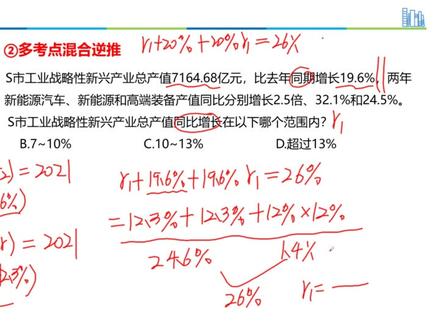 ②多考点混合逆推
r₁+20%+20%r₁=26%
S市工业战略性新兴产业总产值7164.68亿元，比去年同期增长19.6%，两年
新能源汽车、新能源和高端装备产值同比分别增长2.5倍、32.1%和24.5%。
S市工业战略性新兴产业总产值同比增长在以下哪个范围内？ r₁
B.7~10% C.10~13% D.超过13%
2)=2021
6%)
r₁+19.6%+19.6%r₁=26%
=12.3%+12.3%+12%×12%
r)=2021
2.3%)
24.6% 1.4%
26% r₁=